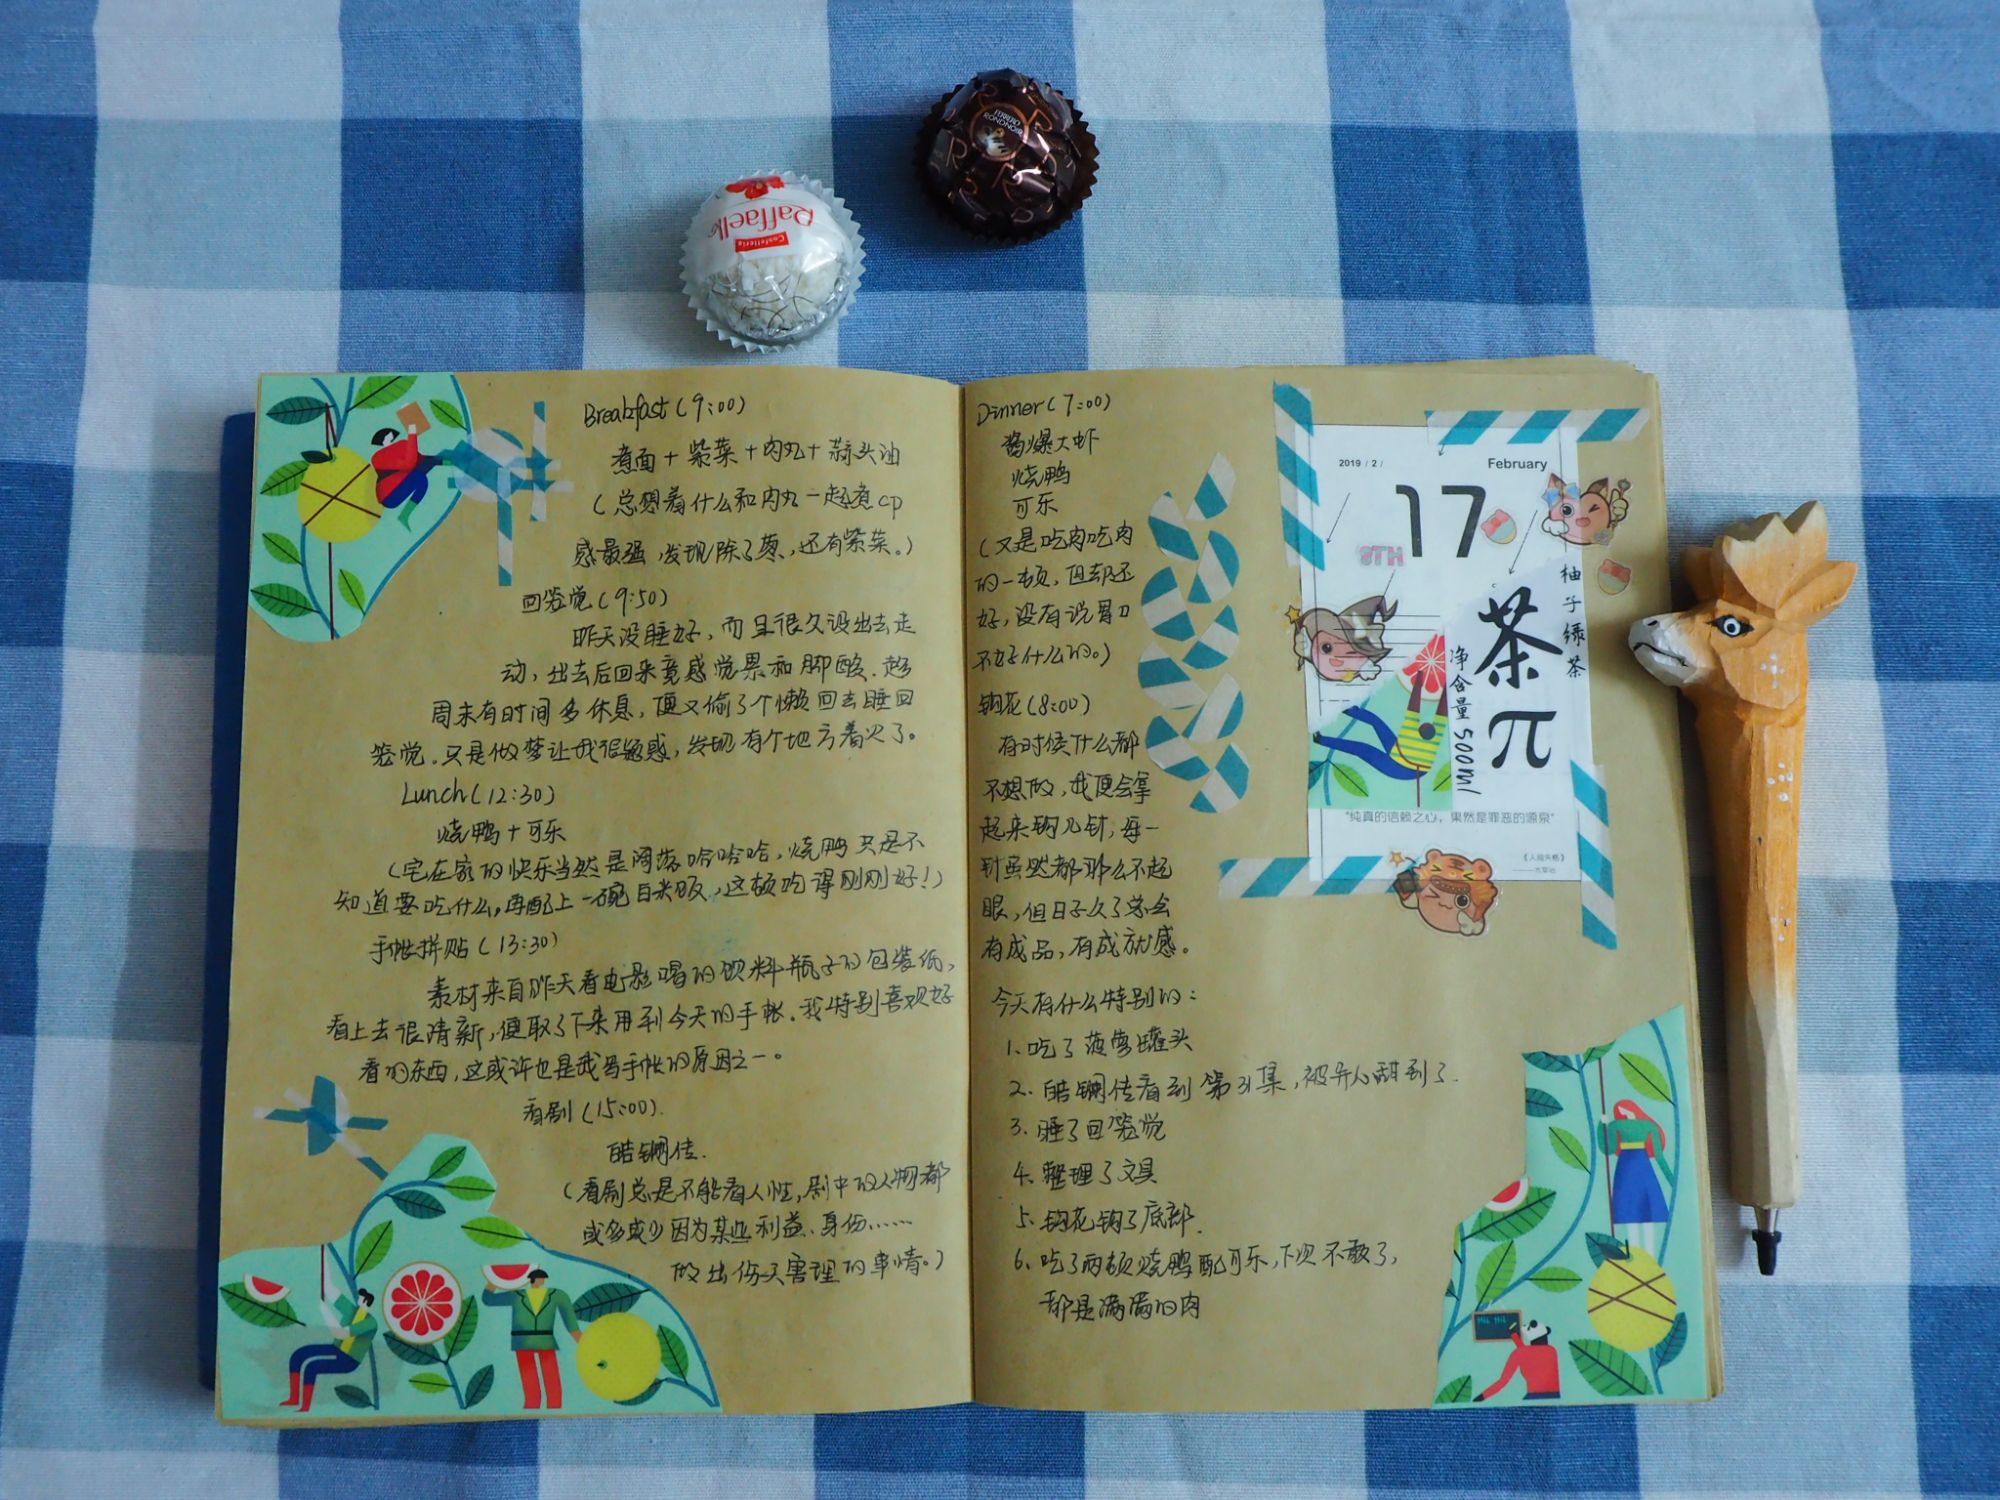 Confetteria
Raffaello
FERRERO
RONDNOIR
Breakfast(9:00)
煮面+紫菜+肉丸+蒜头油
(总想着什么和肉丸一起煮cp
感最强,发现除了葱,还有紫菜。)
回笼觉(9:50)
昨天没睡好,而且很久没出去走
动,出去后回来竟感觉累和脚酸.趁
周末有时间多休息,便又偷了个懒回去睡回
笼觉。只是做梦让我很疑惑,发现有个地方着火了。
Lunch(12:30)
烧鸭+可乐
(宅在家的快乐当然是阔落哈哈哈,烧鸭只是不
知道要吃什么,再配上一碗白米饭,这顿吃得刚刚好!)
手帐拼贴(13:30)
素材来自昨天看电影喝的饮料瓶子的包装纸,
看上去很清新,便取了下来用到今天的手帐.我特别喜欢好
看的东西,这或许也是我写手帐的原因之一。
看剧(15:00).
皓镧传.
(看剧总是不能看人性,剧中的人物都
或多或少因为某些利益、身份……
做出伤天害理的事情。)
Dinner(7:00)
酱爆大虾
烧鸭
可乐
(又是吃肉吃肉
的一顿,但却还
好,没有说胃口
不好什么的。)
钩花(8:00)
有时候什么都
不想做,我便会拿
起来钩几针,每一
针虽然都那么不起
眼,但日子久了总会
有成品,有成就感。
今天有什么特别的:
1.吃了菠萝罐头
2.皓镧传看到第31集,被异人甜到了.
3.睡了回笼觉
4.整理了文具
5.钩花钩了底部.
6.吃了两顿烧鸭配可乐,下次不敢了,
都是满满的肉
2019 / 2 /
February
17
8TH
柚子绿茶
茶π
净含量500ml
“纯真的信赖之心，果然是罪恶的源泉”
《人间失格》
——太宰治